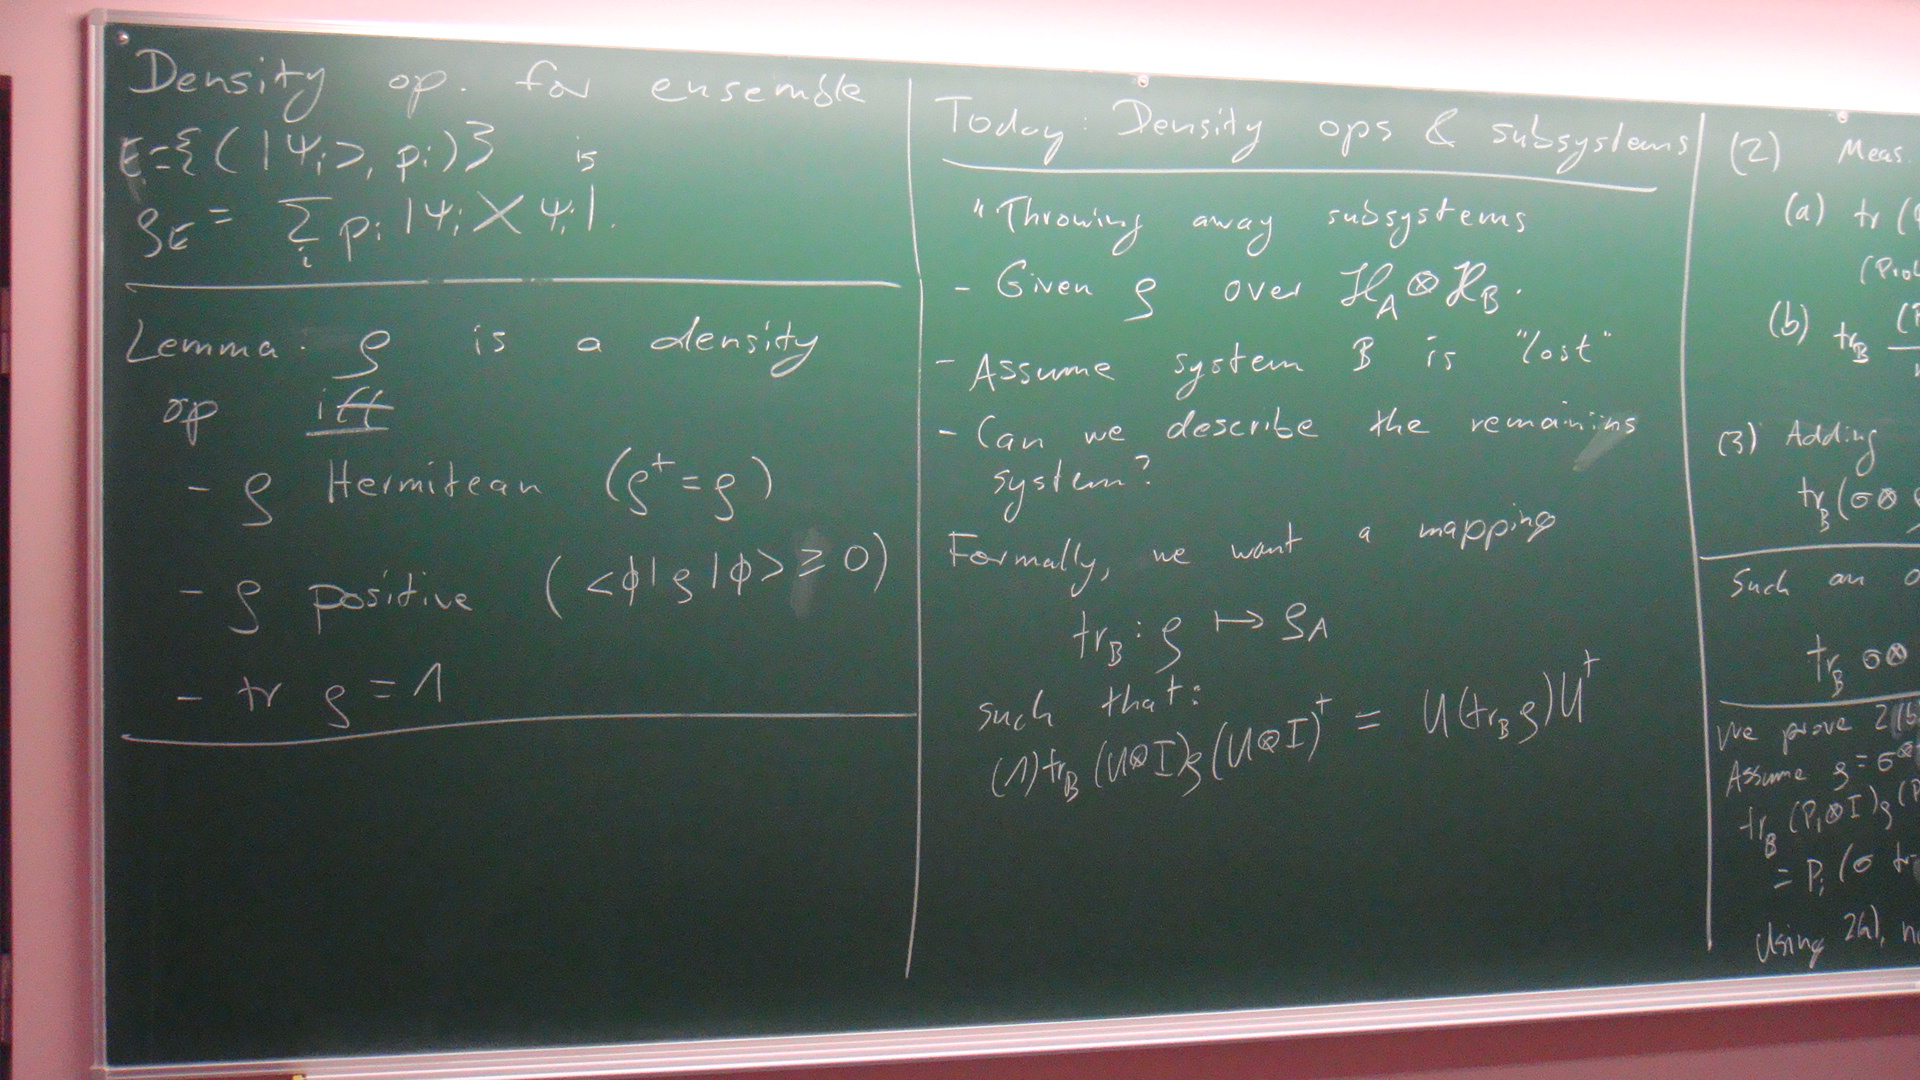 Density op. for ensemble
E={(|Ψi>, pi)} is
ρE = Σi pi |Ψi X Ψi|.
Lemma: ρ is a density
op iff
- ρ Hermitean (ρ† = ρ)
- ρ positive (<φ|ρ|φ> ≥ 0)
- tr ρ = 1
Today: Density ops & subsystems
"Throwing away subsystems
- Given ρ over ℋA ⊗ ℋB.
- Assume system B is "lost"
- Can we describe the remaining
system?
Formally, we want a mapping
trB : ρ ↦ ρA
such that:
(1) trB (U⊗I)ρ(U⊗I)† = U(trB ρ)U†
(2) Meas.
(a) tr (
(b) trB
(3) Adding
trB(σ⊗
Such an
trB σ⊗
We prove 2(b
Assume ρ=σ⊗
trB (Pi⊗I)ρ(P
= Pi (σ tr
Using 2(a),